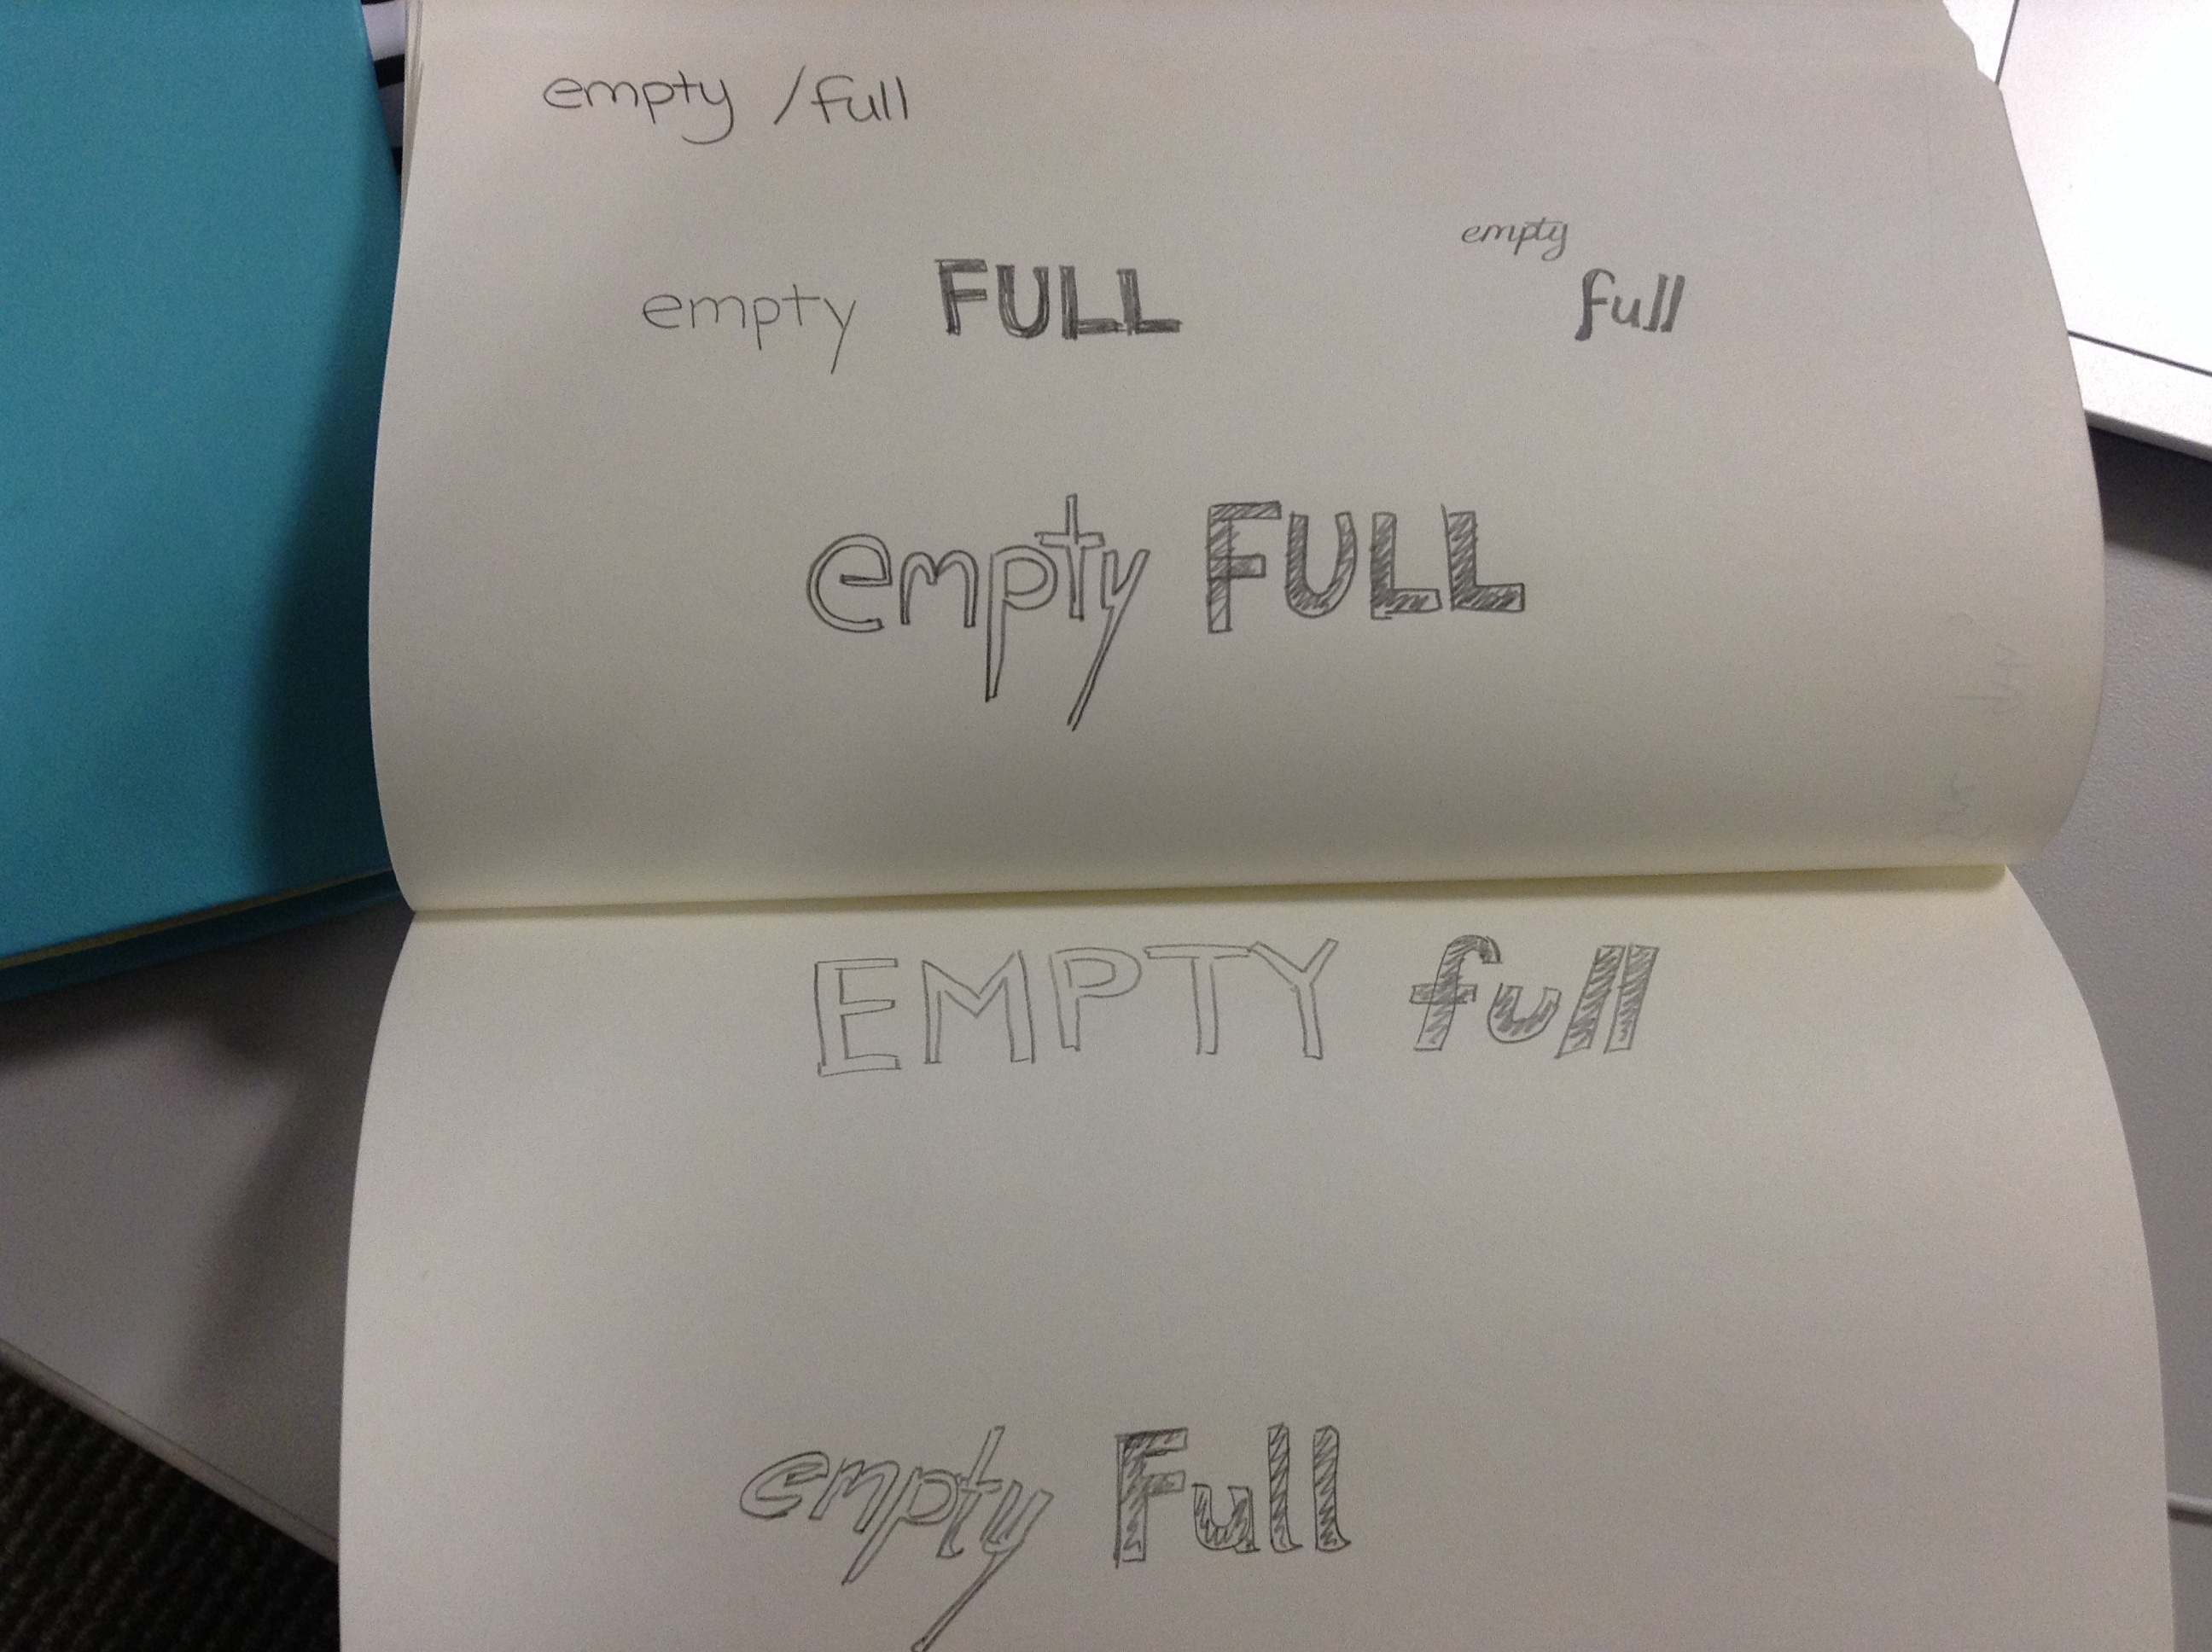 empty / full
empty FULL
empty
full
empty FULL
EMPTY full
empty Full